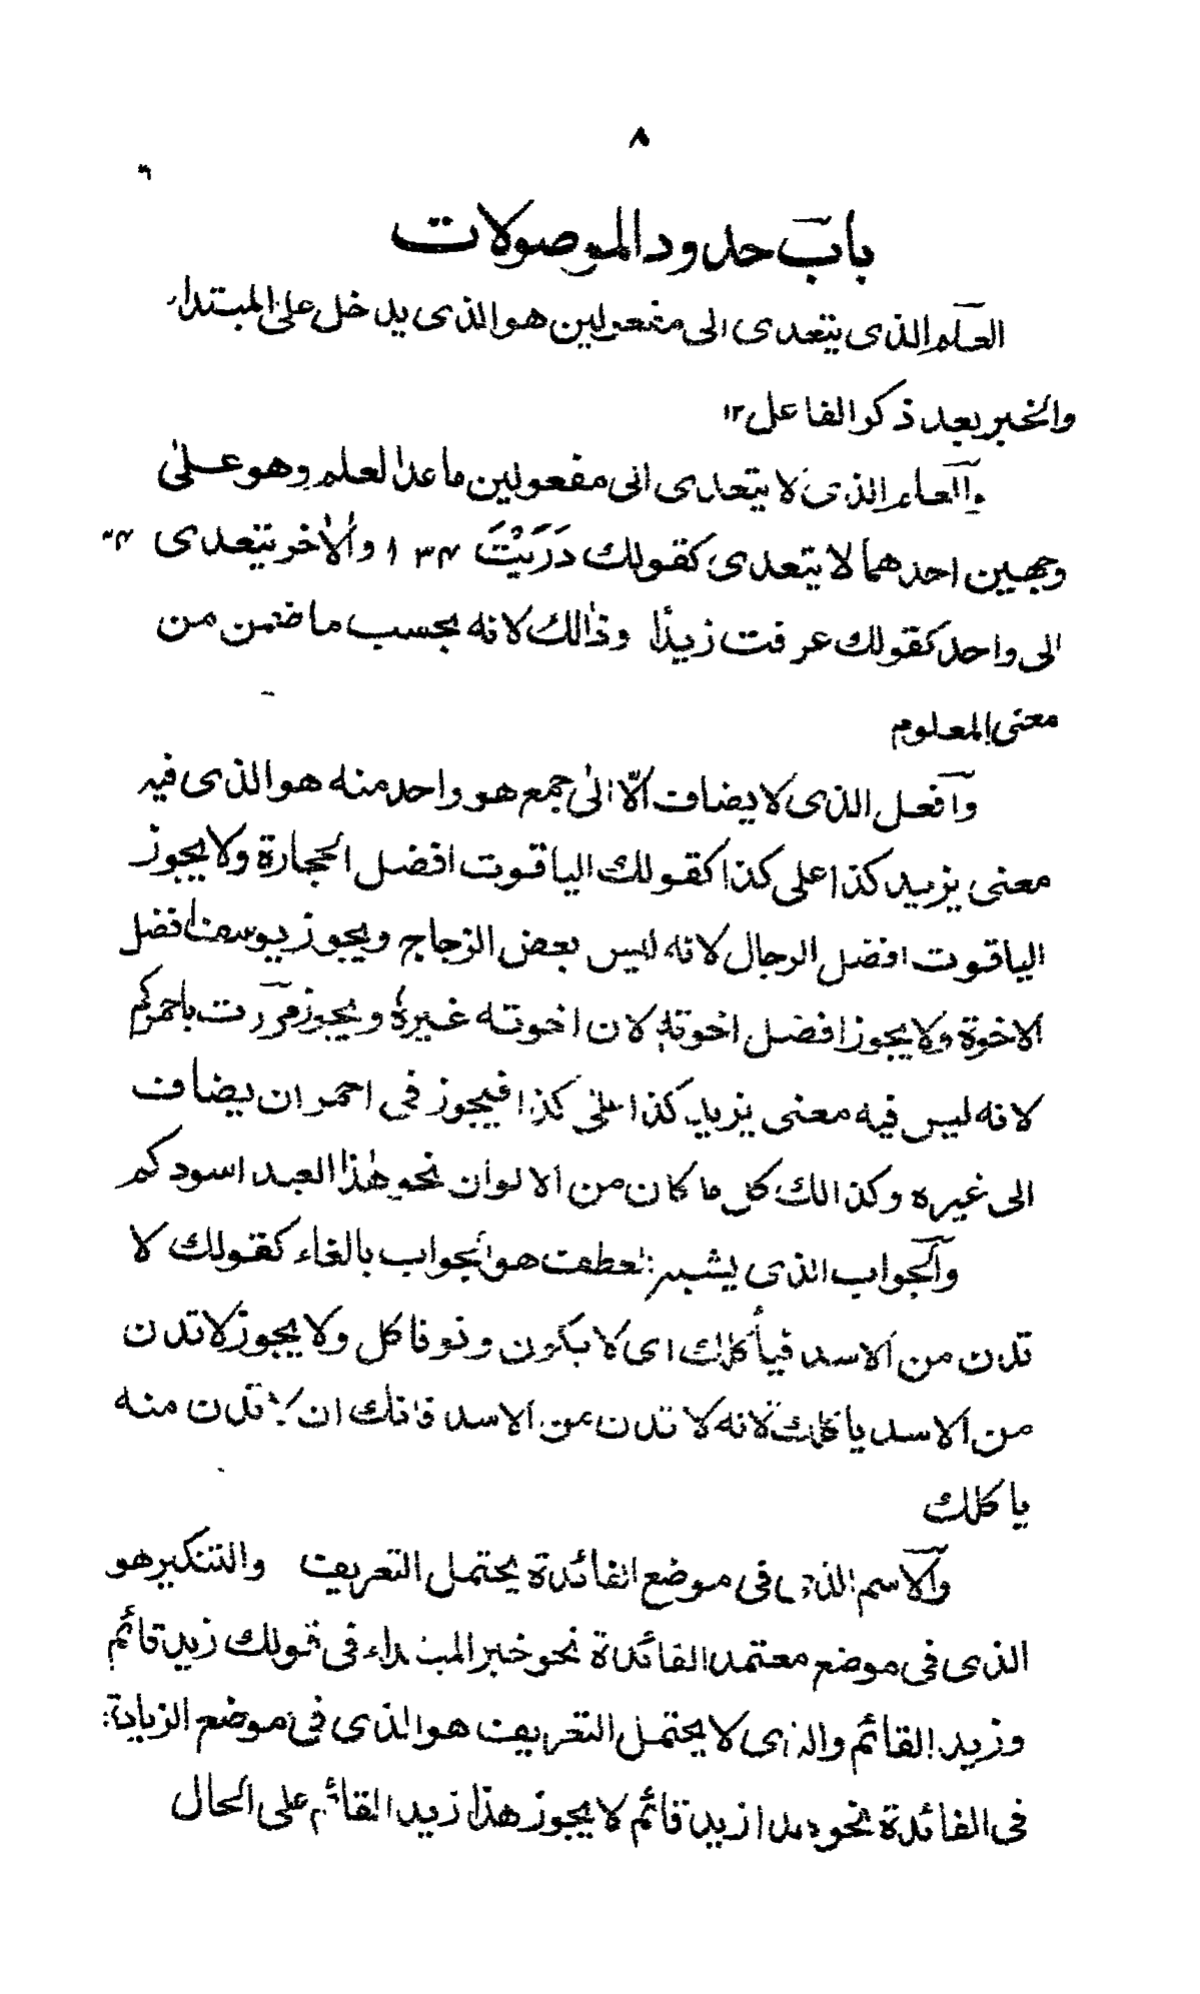 ٨
باب حدود الموصولات
العلم الذى يتعدى الى مفعولين هو الذى يدخل على المبتداء
والخبر بعد ذكر الفاعل ١٢
والعلم الذى لا يتعدى الى مفعولين ما عدا العلم وهو على
وجهين احدهما لا يتعدى كقولك دَرَيْتَ والاخر يتعدى
الى واحد كقولك عرفت زيدًا وذالك لانه بحسب ما ضمن من
معنى المعلوم
وافعل الذى لا يضاف الّا الى جمع هو واحد منه هو الذى فيه
معنى يزيد كذا على كذا كقولك الياقوت افضل الحجارة ولا يجوز
الياقوت افضل الرجال لانه ليس بعض الزجاج ويجوز يوسف افضل
الاخوة ولا يجوز افضل اخوته لان اخوته غيره ويجوز مررت باحمركم
لانه ليس فيه معنى يزيد كذا على كذا فيجوز فى احمر ان يضاف
الى غيره وكذالك كل ما كان من الالوان نحو هٰذا العبد اسودكم
والجواب الذى يشبه العطف هو الجواب بالفاء كقولك لا
تدن من الاسد فيأكلك اى لا يكون دنو فاكل ولا يجوز لا تدن
من الاسد ياكلك لانه لا تدن من الاسد فانك ان لا تدن منه
ياكلك
والاسم الذى فى موضع الفائدة يحتمل التعريف والتنكير هو
الذى فى موضع معتمد الفائدة نحو خبر المبتداء فى قولك زيد قائم
وزيد القائم والذى لا يحتمل التعريف هو الذى فى موضع الزيادة
فى الفائدة نحو هذا زيد قائم لا يجوز هذا زيد القائم على الحال